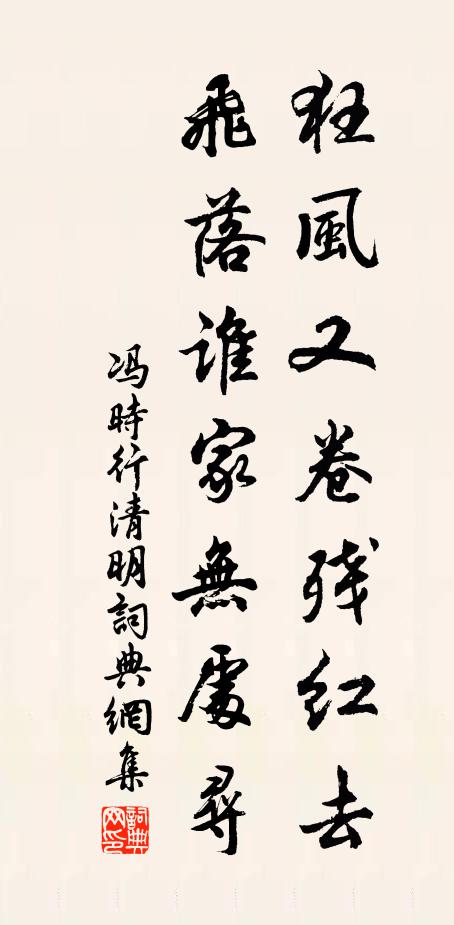 狂風又卷残红去
飛落誰家無處尋
冯時行清明詞典網集
詞典网印